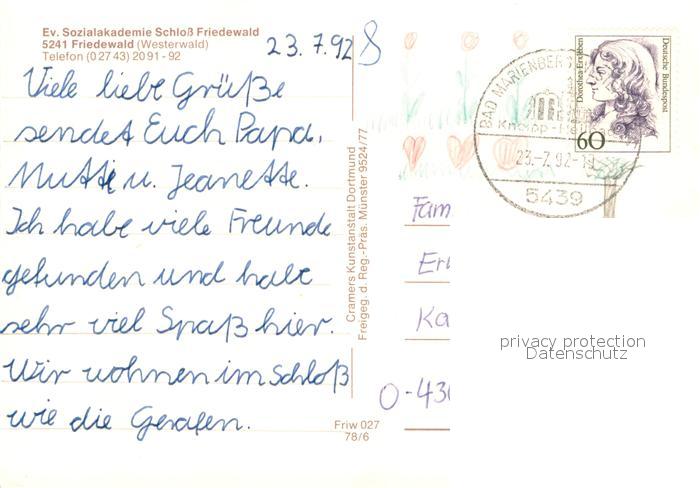 Ev. Sozialakademie Schloß Friedewald
5241 Friedewald (Westerwald)
Telefon (0 27 43) 20 91 - 92
23.7.92
Viele liebe Grüße
sendet Euch Papa,
Mutti u. Jeanette.
Ich habe viele Freunde
gefunden und habe
sehr viel Spaß hier.
Wir wohnen im Schloß
wie die Gerafen.
Friw 027
78/6
Cramers Kunstanstalt Dortmund
Freigeg. d. Reg.-Präs. Münster 9524/77
BAD MARIENBERG
23.-7.92-1
5439
Dorothea Erxleben
Deutsche Bundespost
60
Fam
Er
Ka
O-43
privacy protection
Datenschutz